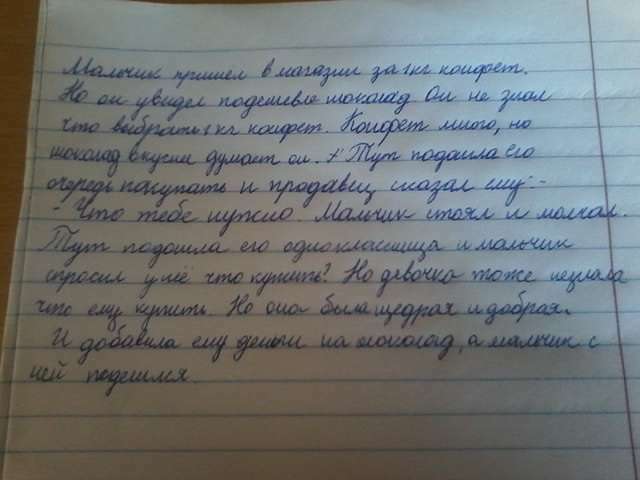 Мальчик пришел в магазин за 1кг конфет.
Но он увидел подешевле шоколад Он не знал
что выбрать 1 кг конфет. Конфет много, но
шоколад вкусней думает он. Тут подошла его
очередь покупать и продавец сказал ему:-
- Что тебе нужно. Мальчик стоял и молчал.
Тут подошла его одноклассница и мальчик
спросил у неё что купить? Но девочка тоже незнала
что ему купить. Но она была щедрая и добрая.
И добавила ему деньги на шоколад, а мальчик с
ней поделился.